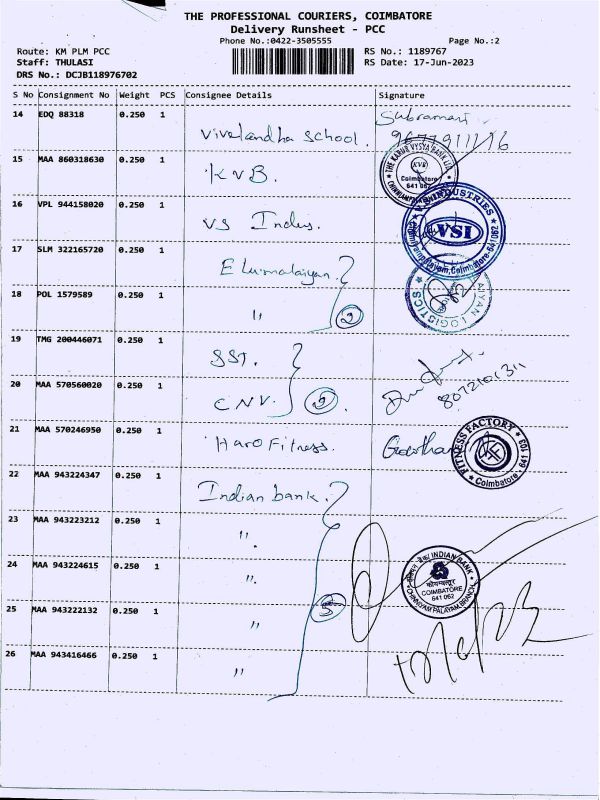 THE PROFESSIONAL COURIERS, COIMBATORE
Delivery Runsheet - PCC
Phone No.:0422-3505555 Page No.:2
Route: KM PLM PCC RS No.: 1189767
Staff: THULASI RS Date: 17-Jun-2023
DRS No.: DCJB118976702
S No Consignment No Weight PCS Consignee Details Signature
14 EDQ 88318 0.250 1
school.
15 MAA 860318630 0.250 1
KVB.
THE KARUR VYSYA BANK LTD
KVB
Coimbatore
641 062
16 VPL 944158020 0.250 1
VS Indus.
VSI
17 SLM 322165720 0.250 1
18 POL 1579589 0.250 1
" 2
LOGISTICS
19 TMG 200446071 0.250 1
SST.
20 MAA 570560020 0.250 1
CNV. 2
21 MAA 570246950 0.250 1
Haro Fitness.
FITNESS FACTORY
Coimbatore - 641 103
22 MAA 943224347 0.250 1
Indian bank.
23 MAA 943223212 0.250 1
"
24 MAA 943224615 0.250 1
"
INDIAN BANK
COIMBATORE
641 062
25 MAA 943222132 0.250 1
" 5
26 MAA 943416466 0.250 1
"